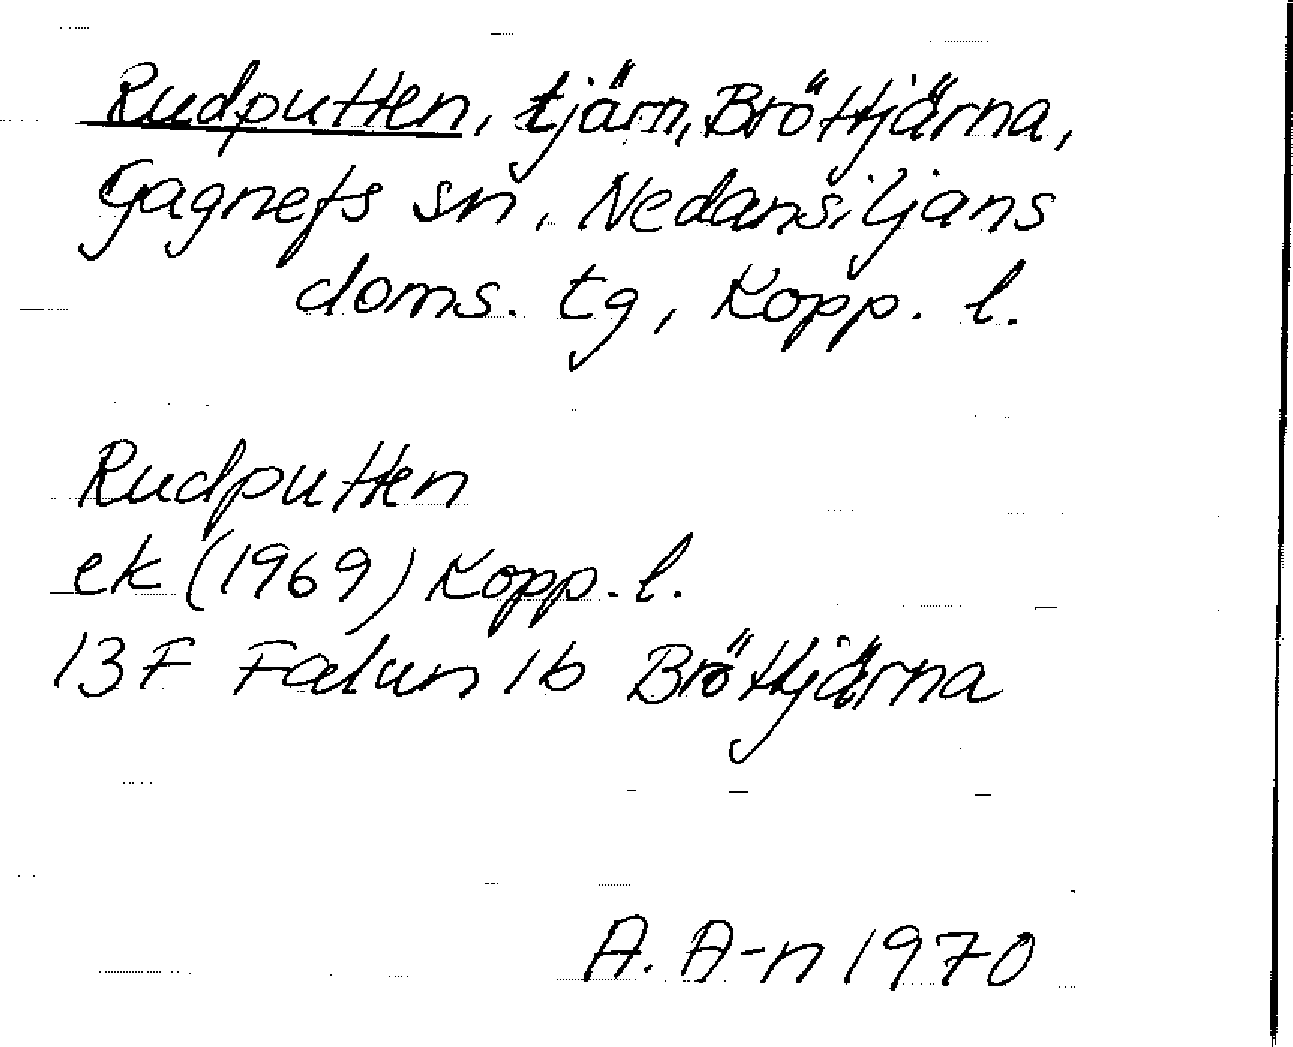 Rudputten, tjärn, Bröttjärna,
Gagnefs sn, Nedansiljans
doms. tg, Kopp. l.
Rudputten
ek (1969) Kopp. l.
13F Falun 1b Bröttjärna
A. A-n 1970